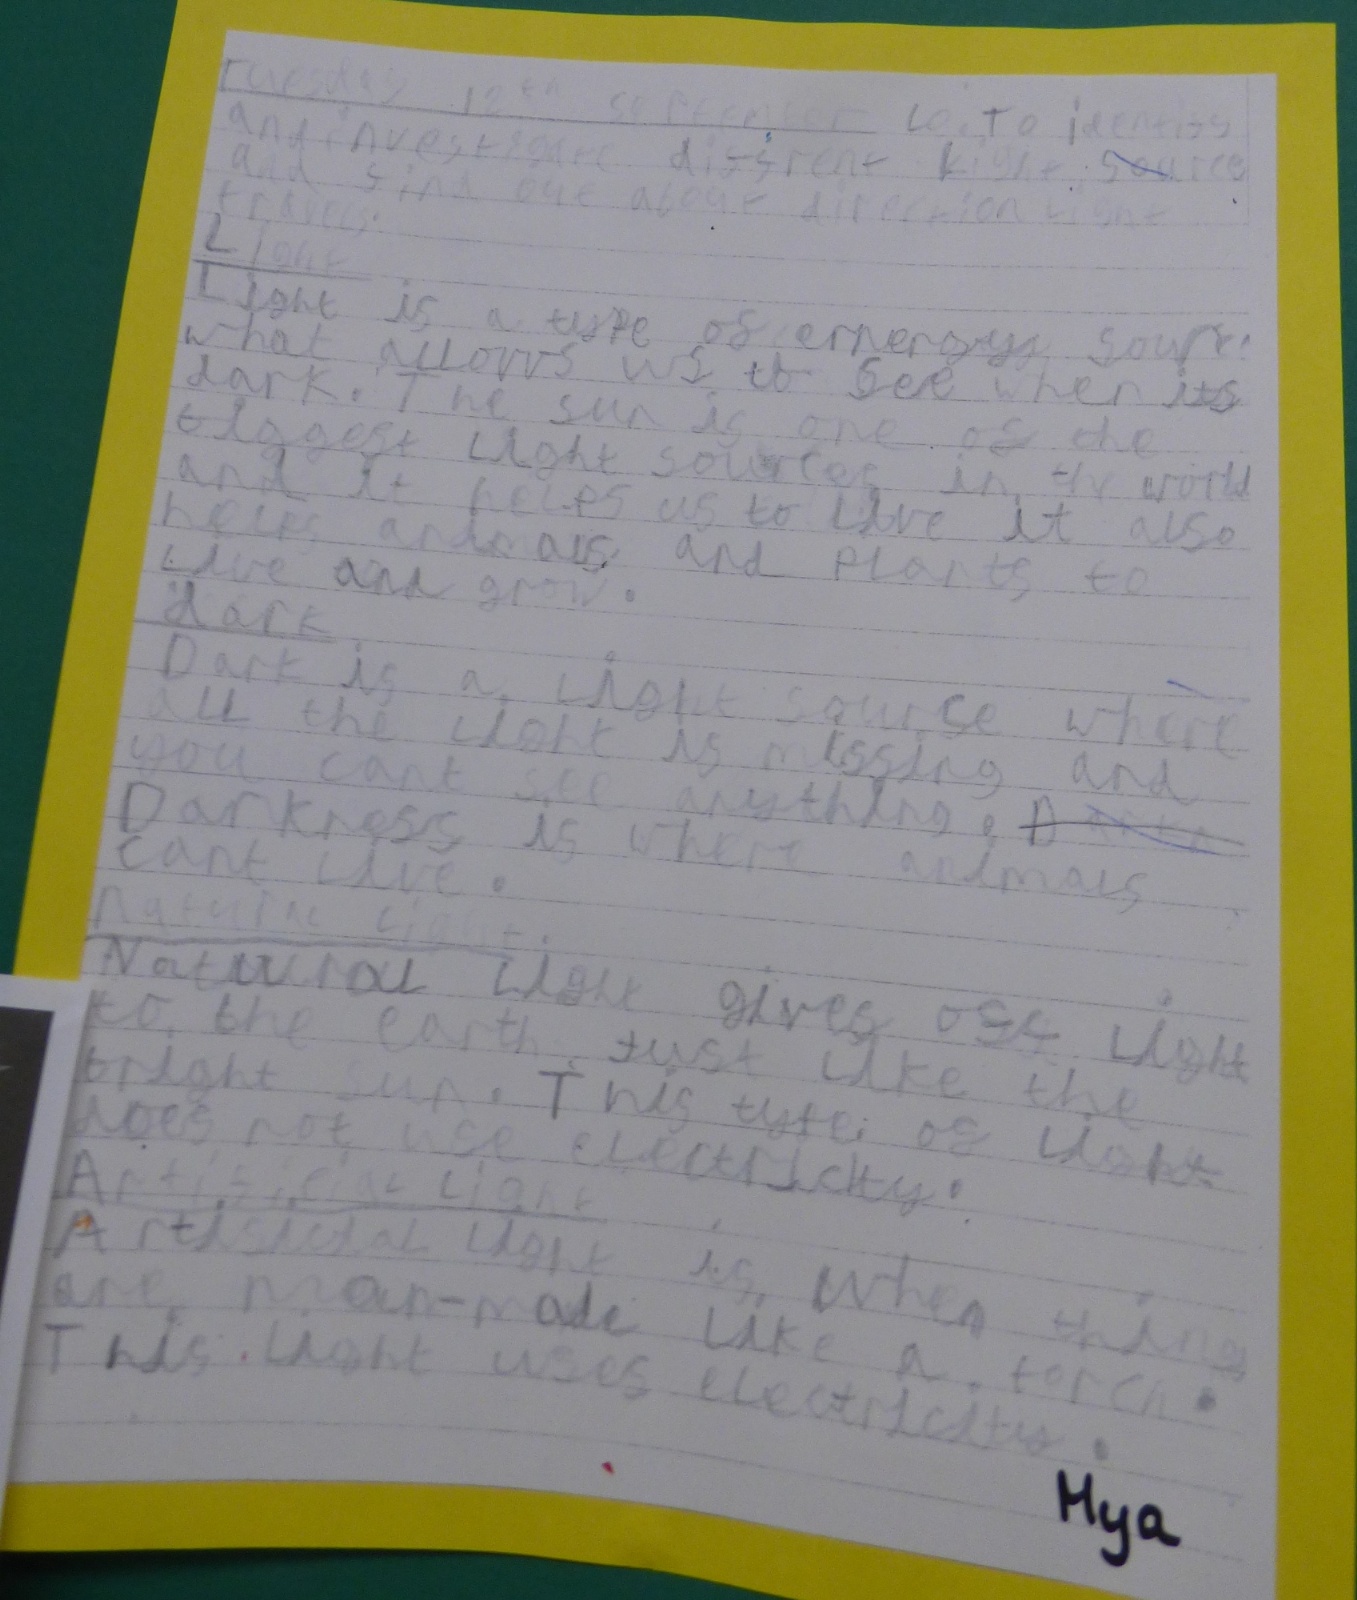 Tuesday 12th September Lo. To identify
and investigate different light source
and find out about direction light
travels.
Light
Light is a type of ernergy sourc
what allows us to see when its
dark. The sun is one of the
biggest light sources in the world
and it helps us to live it also
helps animals and plants to
live and grow.
dark
Dark is a light sourse where
all the light is missing and
you cant see anything.
Darkness is where animals
cant live.
natural light
Natural light gives off light
to the earth just like the
bright sun. This type of light
does not use electricity.
Artificial light
Artificial light is when things
are man-made like a torch.
This light uses electricity.
Mya